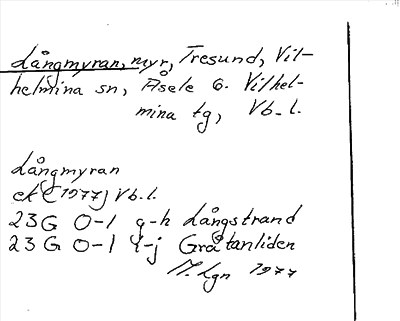 Långmyran, myr, Tresund, Vil-
helmina sn, Åsele o. Vilhel-
mina tg, Vb. l.
Långmyran
ek (1977) Vb. l.
23 G 0-1 g-h Långstrand
23 G 0-1 i-j Gråtanliden
M. Lgn 1977